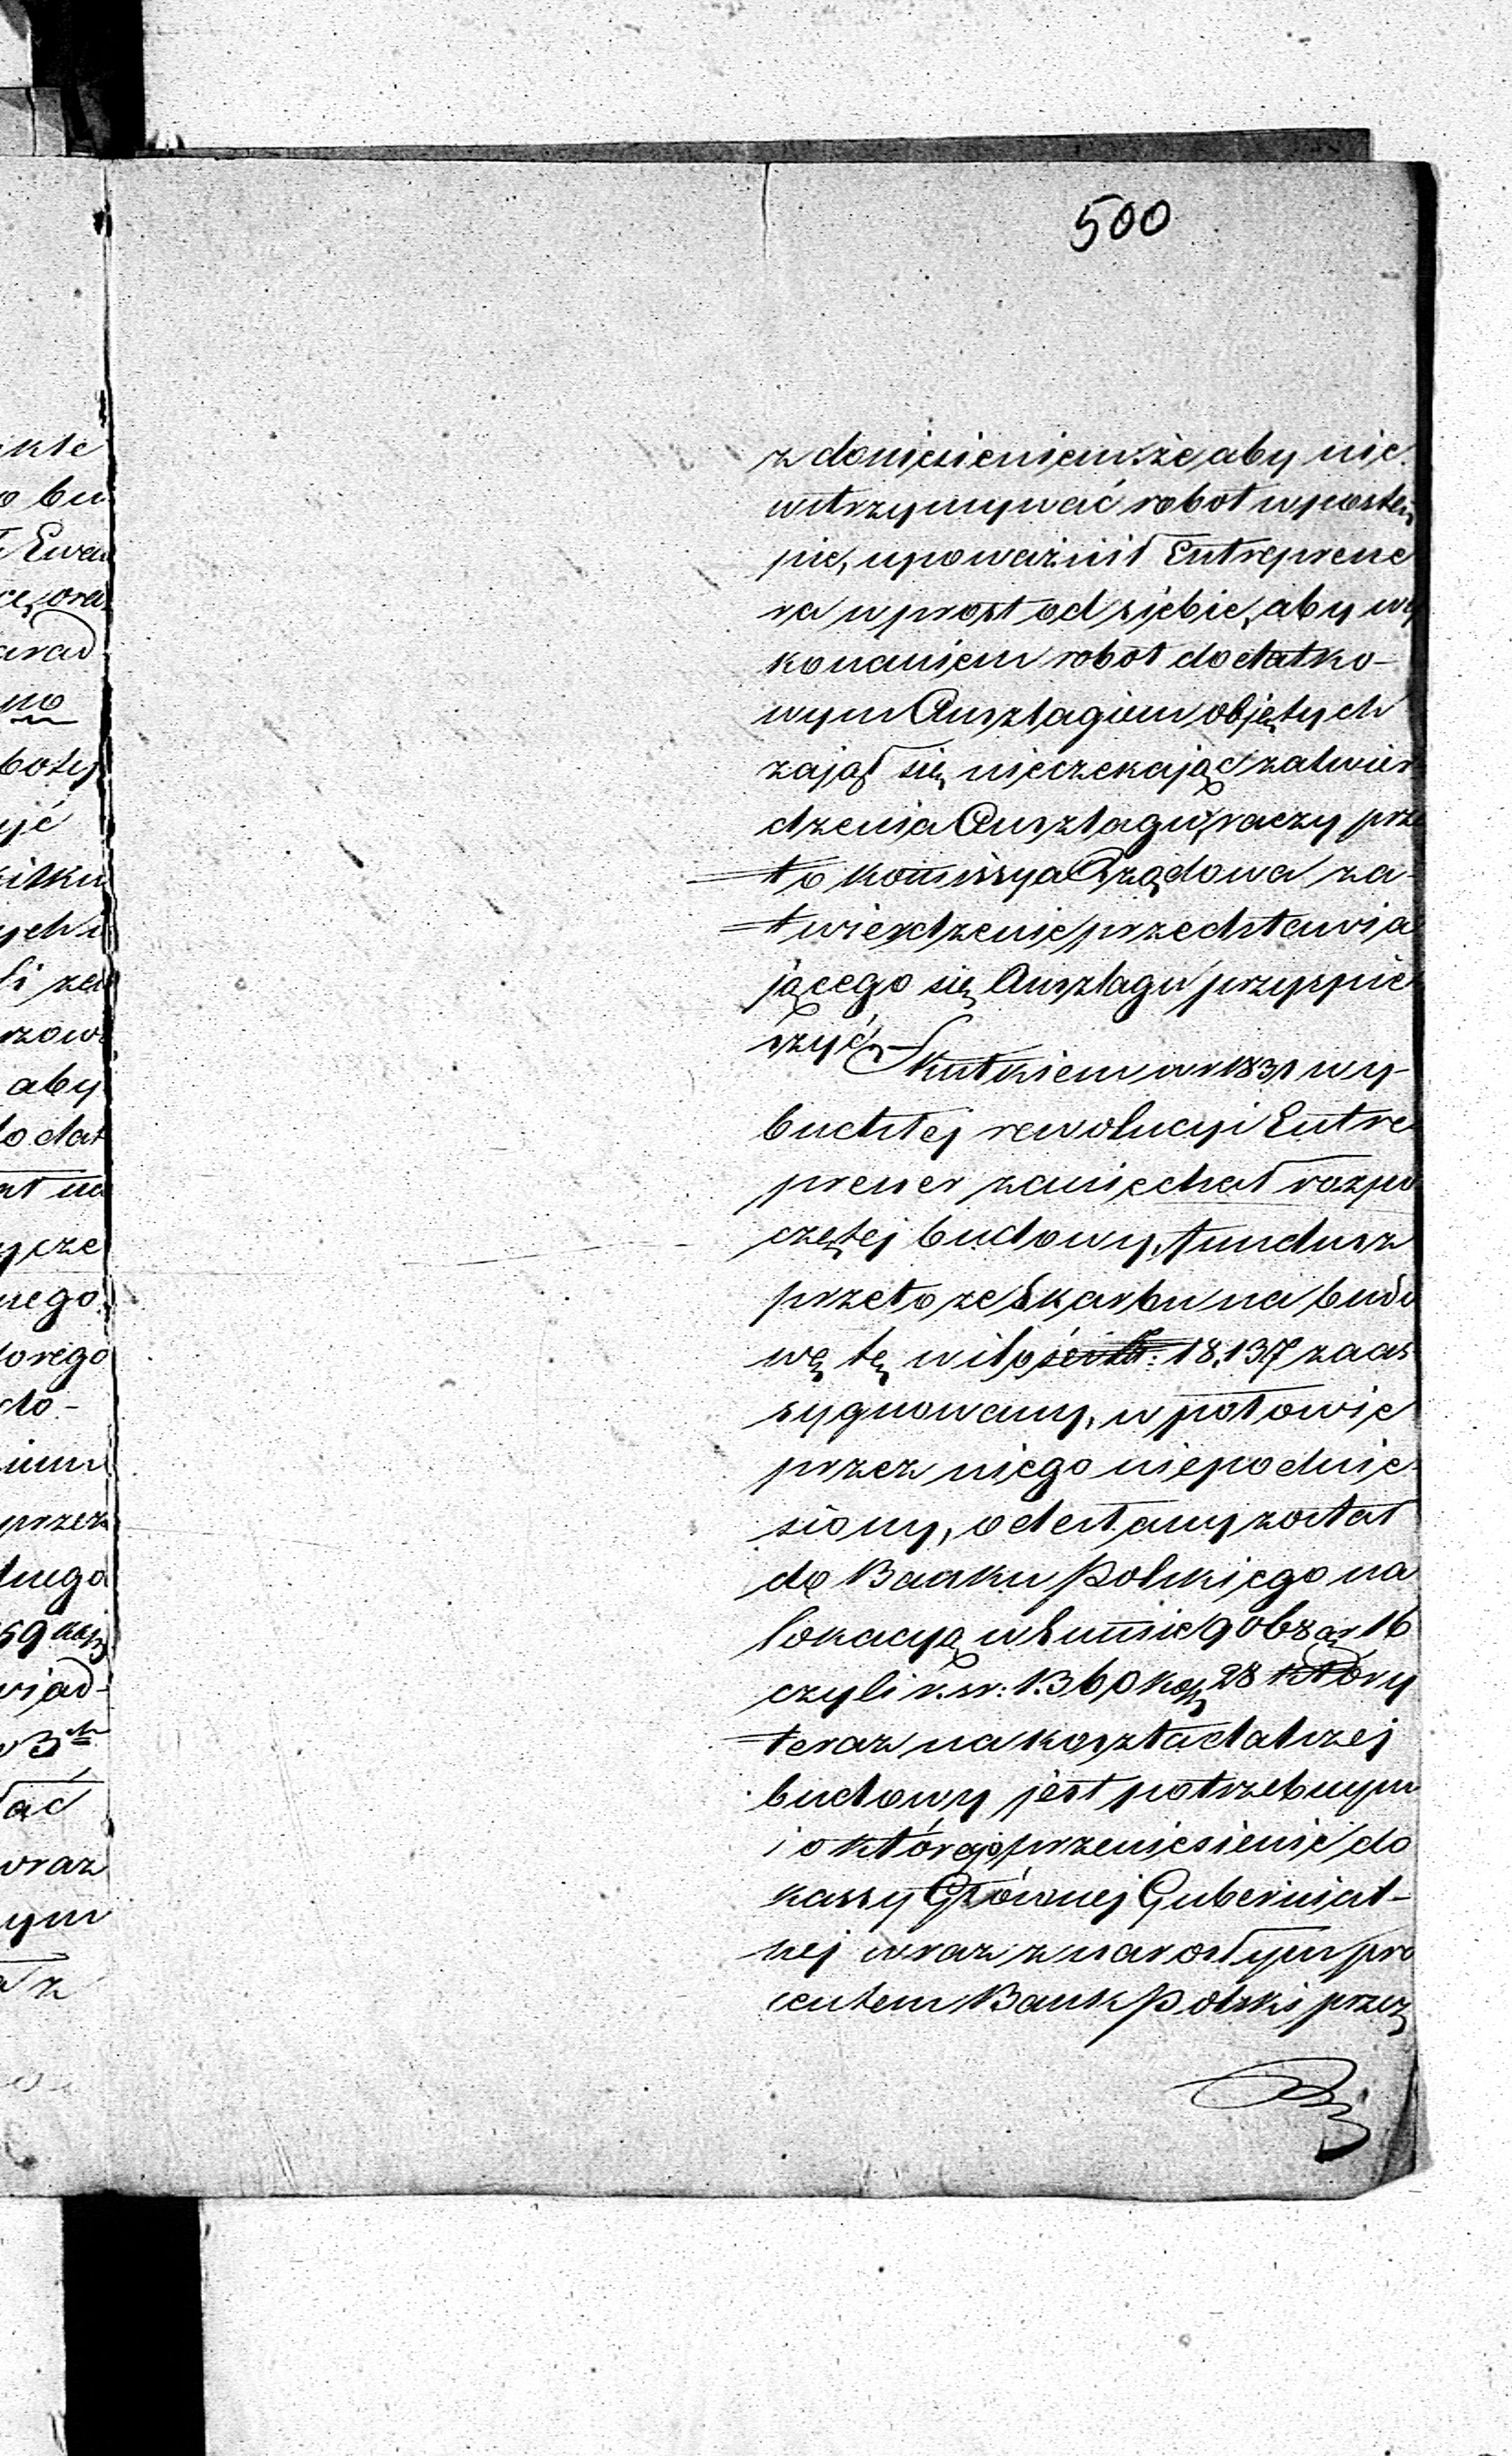 500
z doniesieniem że aby nie
wstrzymywać robot w postę
pie, upoważnił Entreprene
ra wprost od siebie, aby wy
konaniem robot dodatko-
wym Anszlagiem objętych
zajął się nieczekając zatwier
dzenia Anszlagu, raczy prze
to Kommissya Rządowa za-
twierdzenie przedstawia
jącego się Anszlagu przyspie
szyć.
Skutkiem w r 1831 wy-
buchłej rewolucyi Entre
prener zaniechał rozpo
czętej budowy, fundusz
przeto ze Skarbu na budo
wę tę w ilości 18,137 zaas
sygnowany, w połowie
przez niego niepodnie
siony, odesłany został
do Banku Polskiego na
lokacyą w Summie 16
czyli r.sr: 1.360 kop 28 który
teraz na koszta dalszej
budowy jest potrzebnym
i o którego przeniesienie do
kassy Głównej Gubernial-
nej wraz z narosłym pro
centem Bank Polski przez